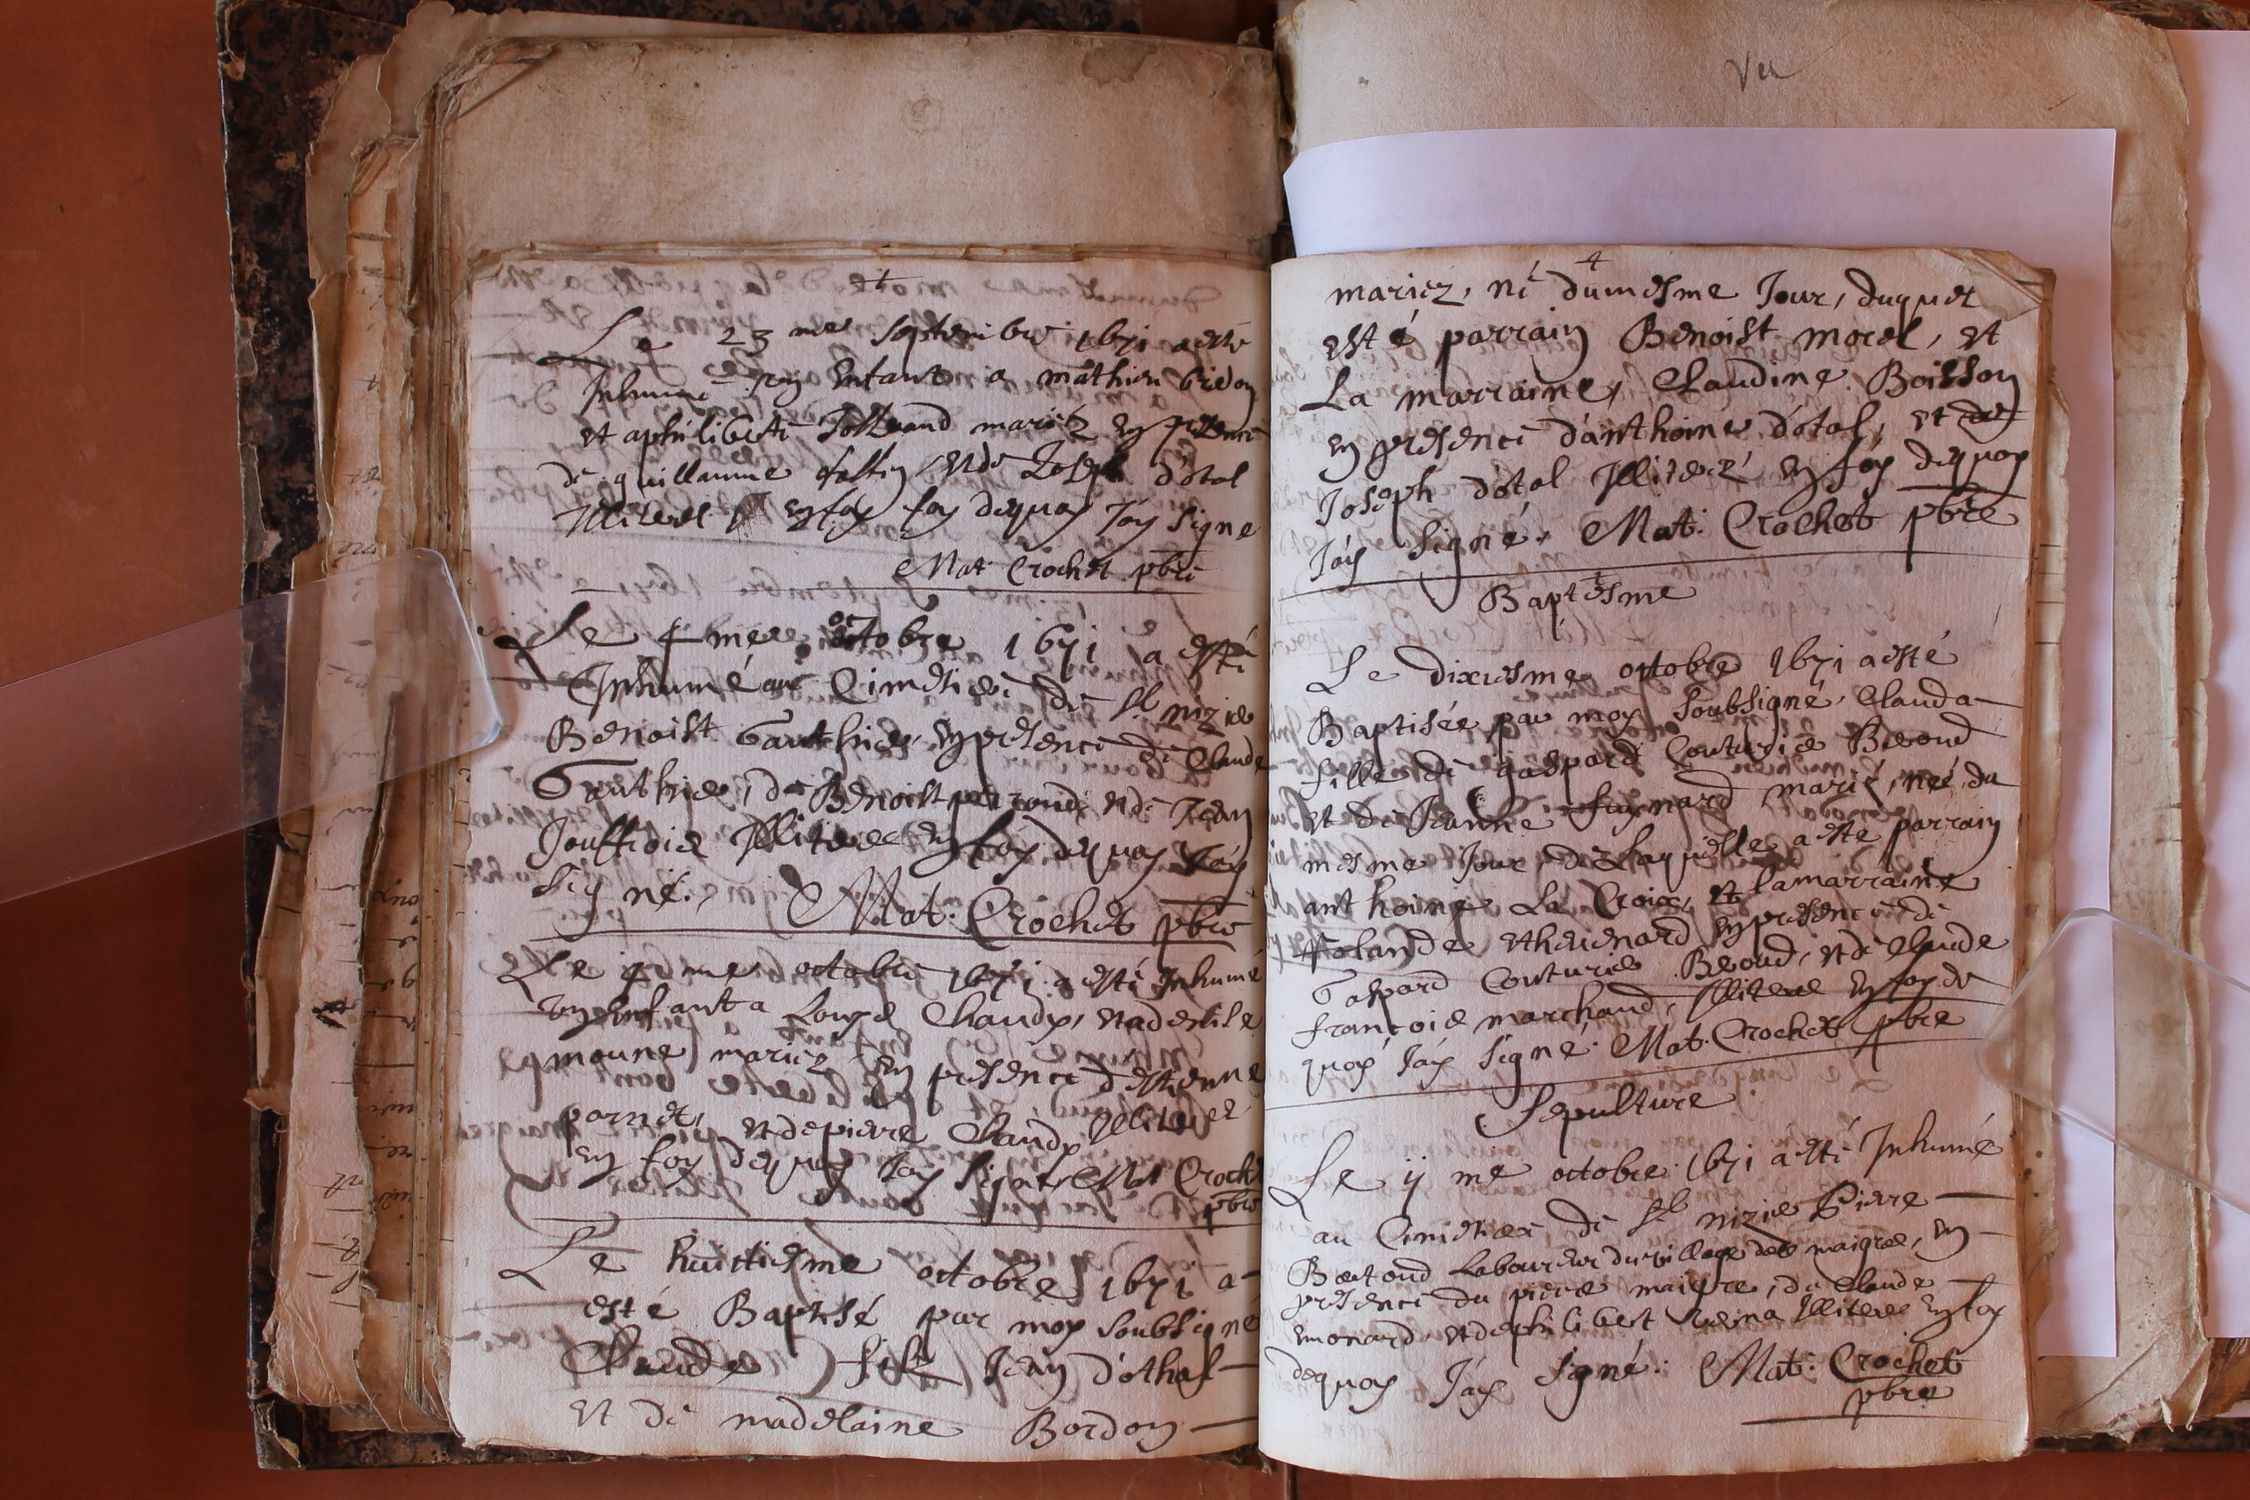 Le 23 me septembre 1671 a esté
Inhumé un enfant a mathieu bridon
et a philiberte mariéz en presence
de guillaume et de Joseph dótal
Illiteres en foy foy dequoy Jáy signe
Mat Crochet pbre
Le 4 me octobre 1671 a esté
Inhumé au Cimetiere de st nizier
Benoist Gauthier, en presence de Claude
Gauthier, de Benoist perroud et de Jean
Jouffroid Illiteres en foy dequoy Jay
signé. Mat. Crochet pbre
Le me octobre 1671 a esté Inhumé
un enfant a Chaudy, et a
moune mariez en presence d'estienne
pornet, et de pierre Chaudy Illiterez
en foy dequoy Jay signé Mat Crochet
pbre
Le huictiesme octobre 1671 a
esté Baptisé par moy soubsigné
Claude filz Jean d'othal
et de madelaine Bordon
4
mariez, né dumesme Jour, duquel
esté parrain Benoist morel, et
La marraine, Claudine Boisson
en presence dánthoine dótal, et de
Joseph dótal Illiterez en foy dequoy
Jáy signé. Mat. Crochet pbre
Baptesme
Le dixiesme octobre 1671 a esté
Baptisée par moy soubsigné, Clauda
fille de gaspard Couturier Beroud
et de Jeanne mariés, neé du
mesme Jour, de laquelle a esté parrain
anthoine La Croix, et la marraine
en presence de
Gaspard Couturier Beroud, et de Claude
françois marchand, Illiteres en foy de
quoy Jáy signé. Mat. Crochet pbre
Sepulture
Le ij me octobre 1671 a esté Inhumé
au Cimetier de st nizier Pierre
Bertoud Laboureur du village des maigres, en
presence du pierre maigre, de Claude
emonard et de philibert Illiteres en foy
dequoy Jáy signé. Mat. Crochet
pbre
Vu